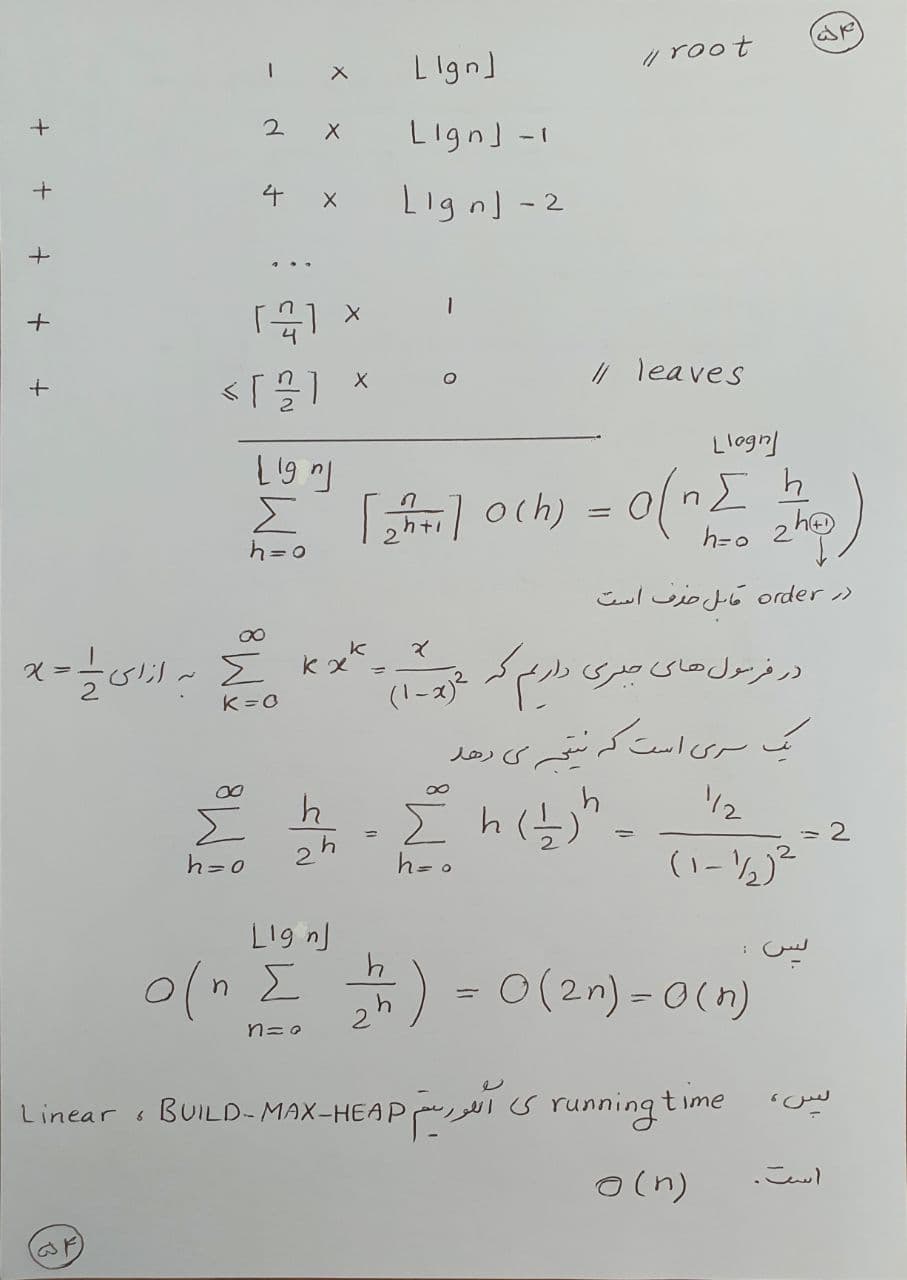 ۵۴
1 × ⌊lgn⌋ // root
+ 2 × ⌊lgn⌋ -1
+ 4 × ⌊lgn⌋ - 2
+ ...
+ ⌈n/4⌉ × 1
+ ≤⌈n/2⌉ × 0 // leaves
∑_{h=0}^{⌊lgn⌋} ⌈n/2^{h+1}⌉ O(h) = O(n ∑_{h=0}^{⌊logn⌋} h/2^{h+1})
در order قابل حذف است
در فرمول های جبری داریم که ∑_{k=0}^{∞} kx^k = x/(1-x)^2 به ازای x = 1/2
یک سری است که نتیجه می دهد
∑_{h=0}^{∞} h/2^h = ∑_{h=0}^{∞} h(1/2)^h = 1/2/(1-1/2)^2 = 2
پس:
O(n ∑_{n=0}^{⌊lgn⌋} h/2^h) = O(2n) = O(n)
پس، running time ی الگوریتم BUILD-MAX-HEAP، Linear
است. O(n)
۵۴